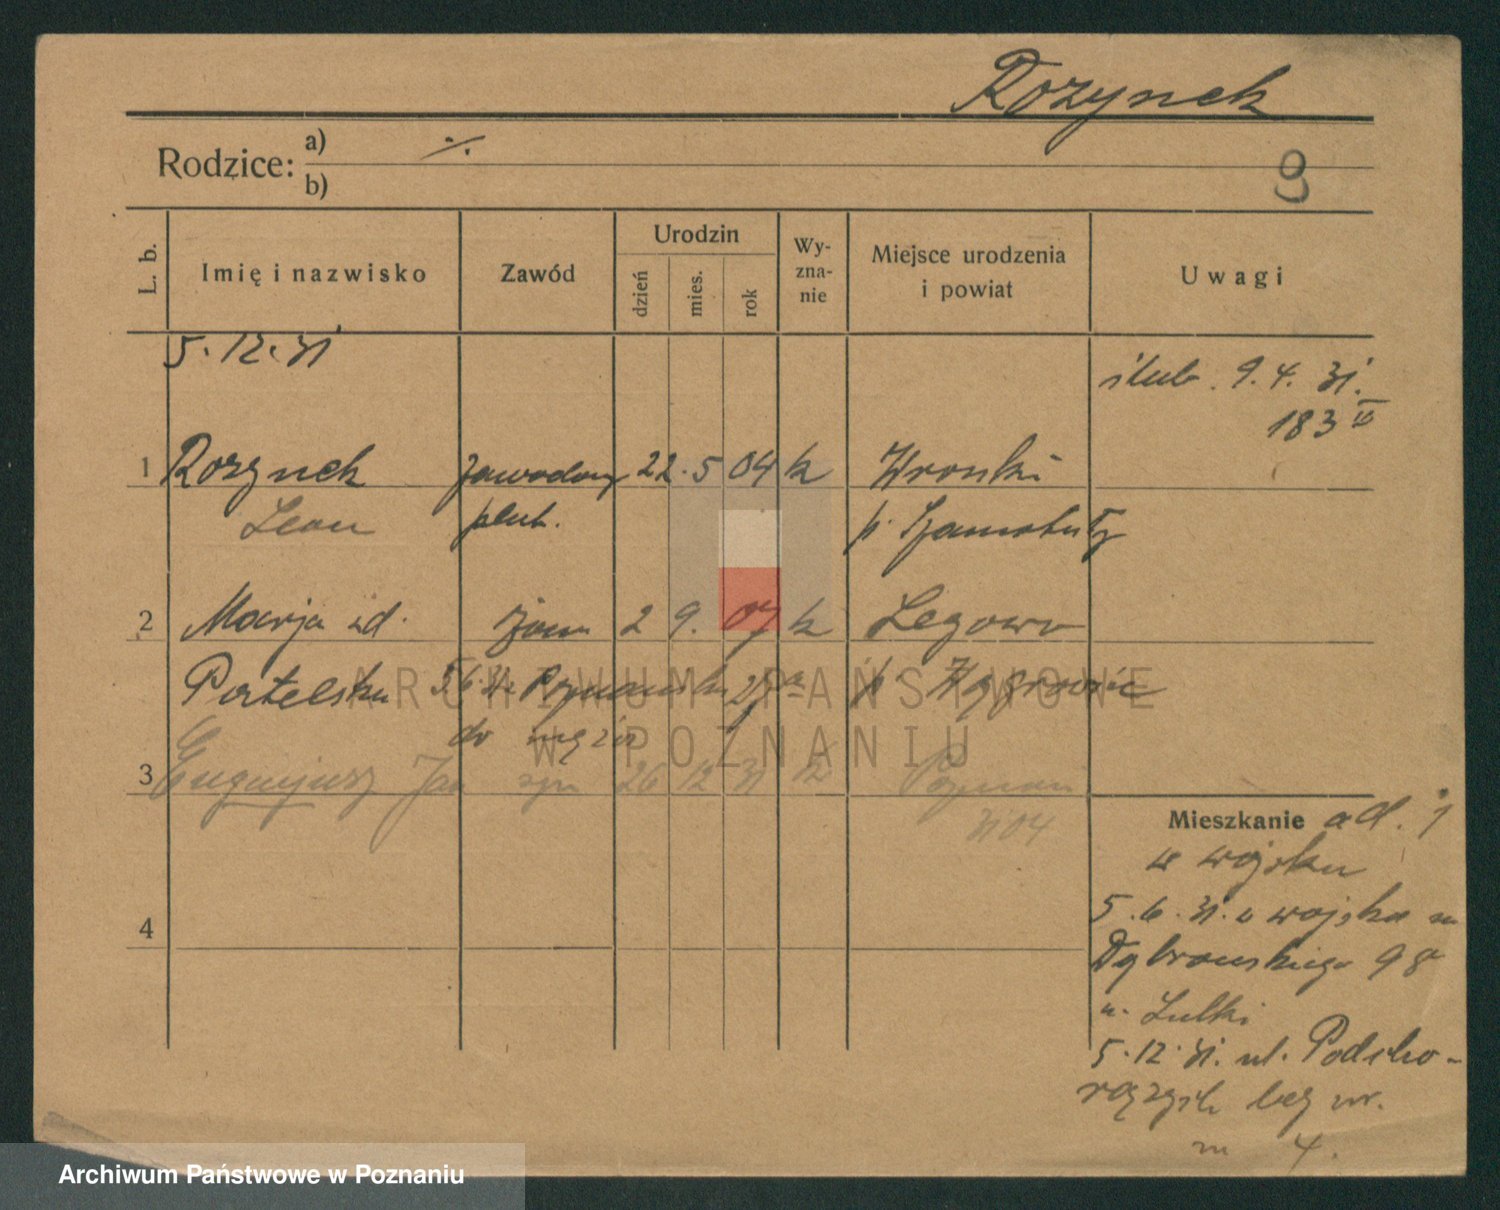 Rozynek
Rodzice: a) ·/.
b)
9
L. b.
Imię i nazwisko
Zawód
Urodzin
dzień
mies.
rok
Wy-
zna-
nie
Miejsce urodzenia
i powiat
Uwagi
5.12.31
ślub. 9.4.31.
183
1 Rozynek zawodowy 22.5 04 k Wronki
Leon plut. p. Szamotuły
2 Marja zd. żona 2 9. 07 k Łegowo
Portelska 5.6.31. Poznańska p. Wągrowiec
do męża
3 Eugenjusz Jan syn 26 12 31 k Poznań
3104
Mieszkanie ad. 1
w wojsku
5.6.31. z wojska
Dąbrowskiego
u. Lulki
5.12.31. ul. Podcho-
rążych bez nr.
m 4.
4
ARCHIWUM PAŃSTWOWE
W POZNANIU
Archiwum Państwowe w Poznaniu